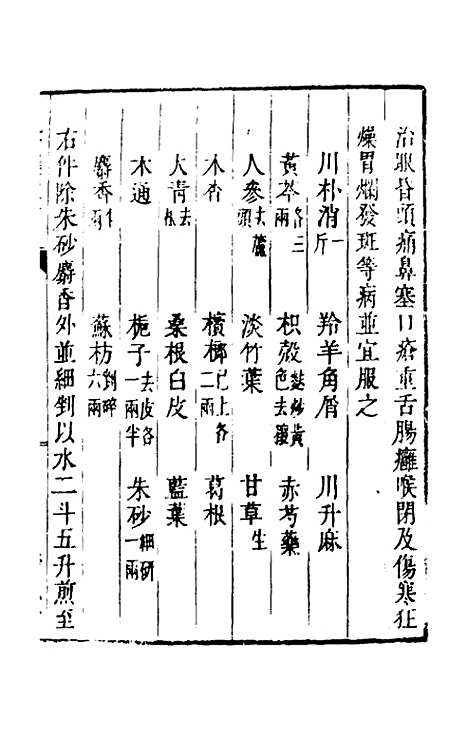 治眼昏頭痛鼻塞口瘡重舌腸癰喉閉及傷寒狂
燥胃爛發斑等病並宜服之
川朴消一斤　羚羊角屑　川升麻
黃芩各三兩　枳殼麩炒黃色去穰　赤芍藥
人參去蘆頭　淡竹葉　甘草生
木香　檳榔已上各二兩　葛根
大青去根　桑根白皮　藍葉
木通　梔子去皮各一兩半　朱砂細研一兩
麝香半兩　蘇枋剉碎六兩
右件除朱砂麝香外並細剉以水二斗五升煎至